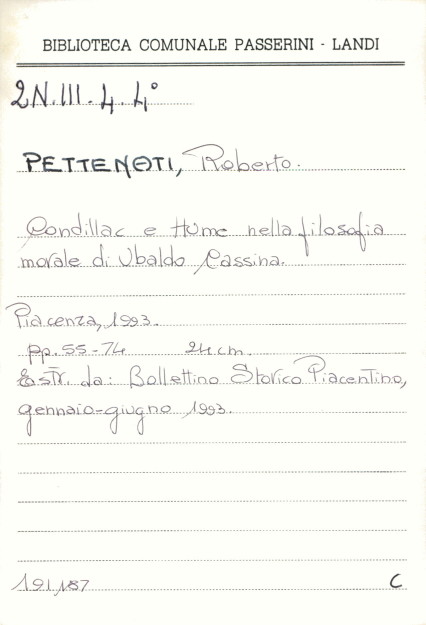 BIBLIOTECA COMUNALE PASSERINI - LANDI
2N.III.4.4°
PETTENATI, Roberto.
Condillac e Hume nella filosofia
morale di Ubaldo Cassina.
Piacenza, 1993.
pp. 55-74 24 cm.
Estr. da: Bollettino Storico Piacentino,
gennaio-giugno 1993.
191.187 C